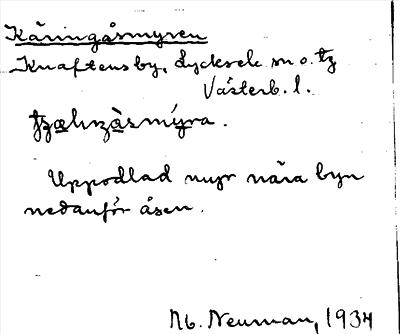 Käringåsmyren
Knaftens by, Lycksele sn o. tg
Västerb. l.
Uppodlad myr nära byn
nedanför åsen.
Nb. Neuman, 1934